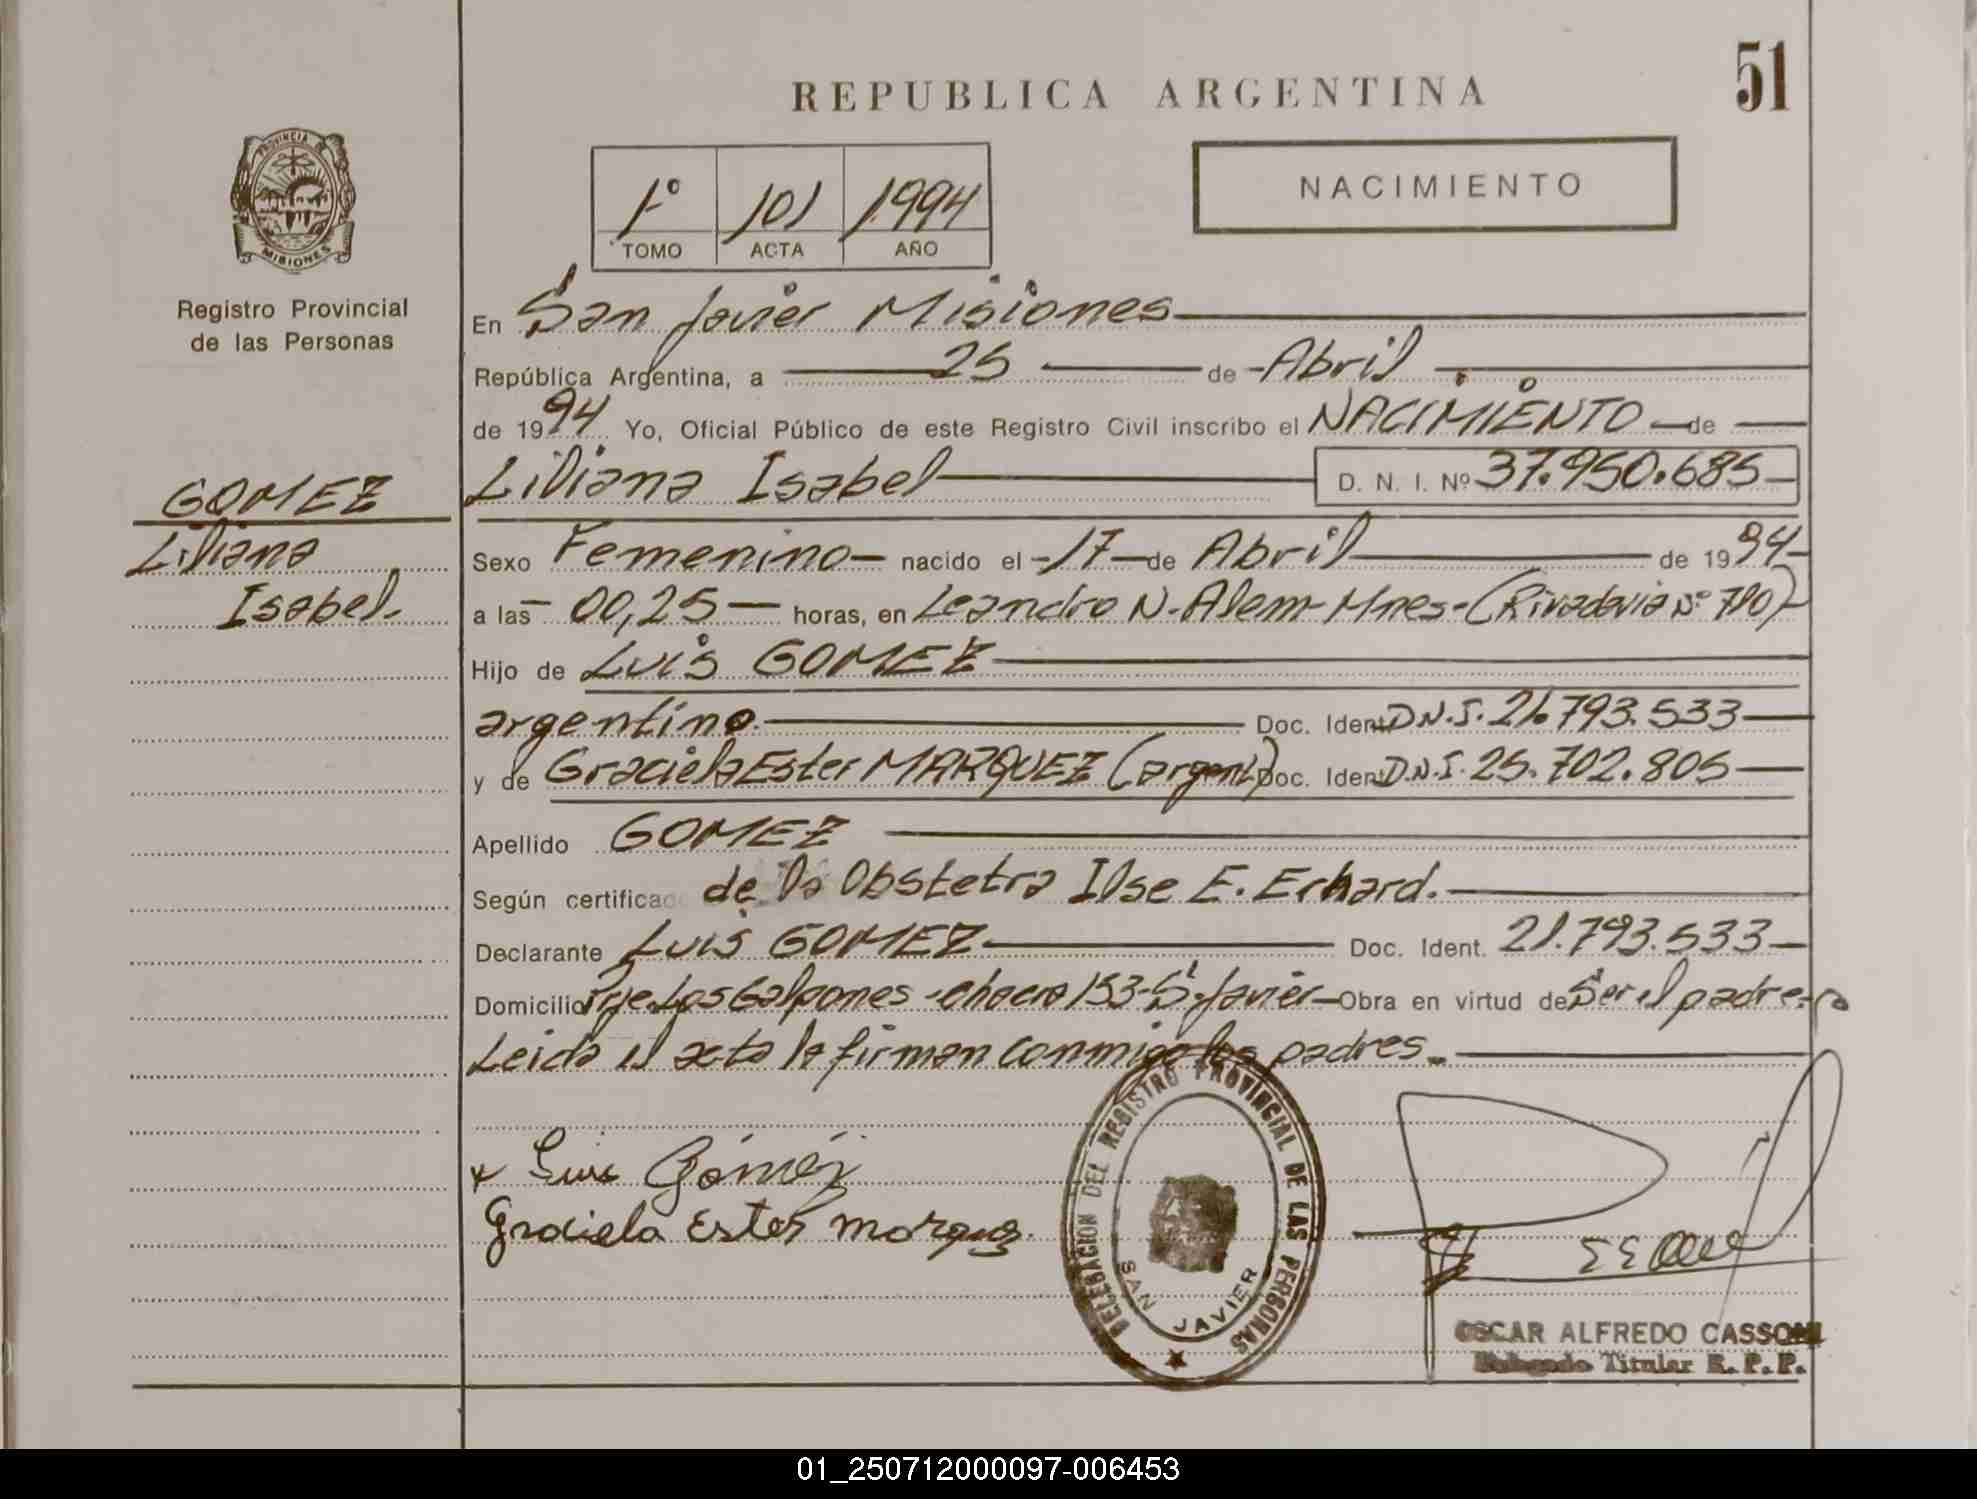 51
REPUBLICA ARGENTINA
PROVINCIA DE
MISIONES
Registro Provincial
de las Personas
NACIMIENTO
1º 101 1994
TOMO ACTA AÑO
En San Javier Misiones
República Argentina, a 25 de Abril
de 1994 Yo, Oficial Público de este Registro Civil inscribo el NACIMIENTO de
GOMEZ
Liliana
Isabel.
Liliana Isabel D. N. I. Nº 37.950.685
Sexo Femenino nacido el 17 de Abril de 1994
a las 00,25 horas, en Leandro N. Alem Mnes-(Rivadavia Nº 710)
Hijo de Luis GOMEZ
argentino. Doc. Ident. D.N.I. 21.793.533
y de Graciela Ester MARQUEZ (argent.) Doc. Ident. D.N.I. 25.702.805
Apellido GOMEZ
Según certificado de la Obstetra Ilse E. Erhard.
Declarante Luis GOMEZ Doc. Ident. 21.793.533
Domicilio Pje. Los Galpones - chacra 153-S. Javier Obra en virtud de Ser el padre.
Leida el acta la firman conmigo los padres.
x Luis Gómez
Graciela Ester Marquez.
DELEGACION DEL REGISTRO PROVINCIAL DE LAS PERSONAS
SAN JAVIER
OSCAR ALFREDO CASSONI
Delegado Titular R. P. P.
01_250712000097-006453